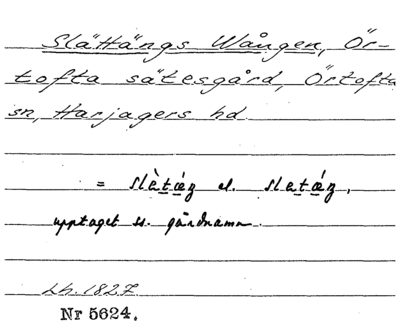 Slättängs Wången, Ör-
tofta sätesgård, Örtofta
sn, Harjagers hd
= slètæŋ el. sletǽŋ,
upptaget ss. gårdnamn.
Lh. 1827
Nr 5624.